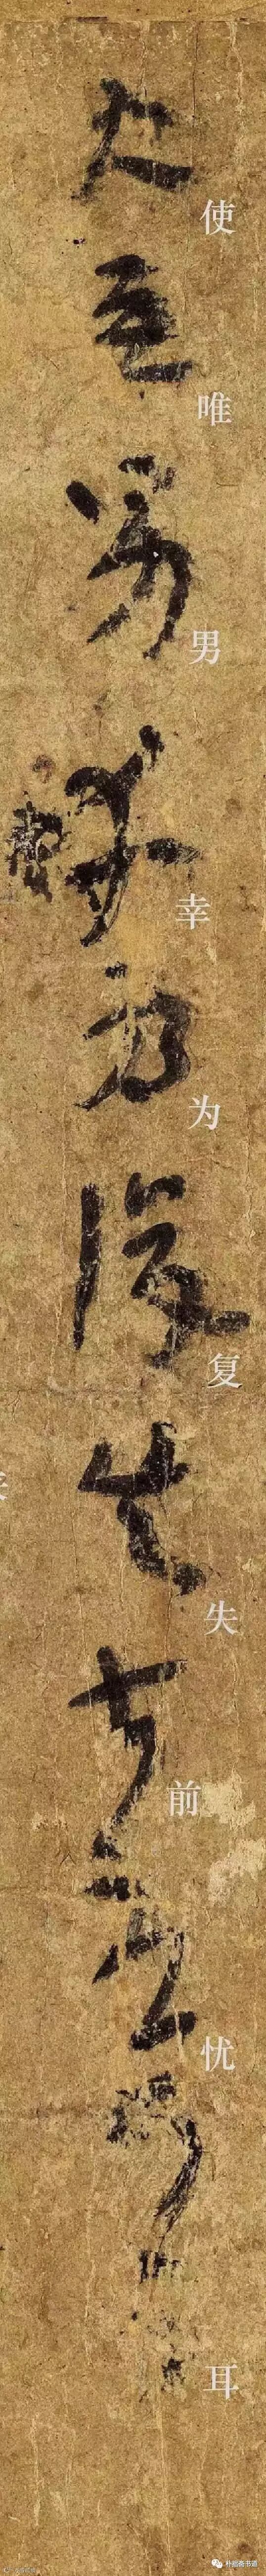 使唯男幸为复失前忧耳